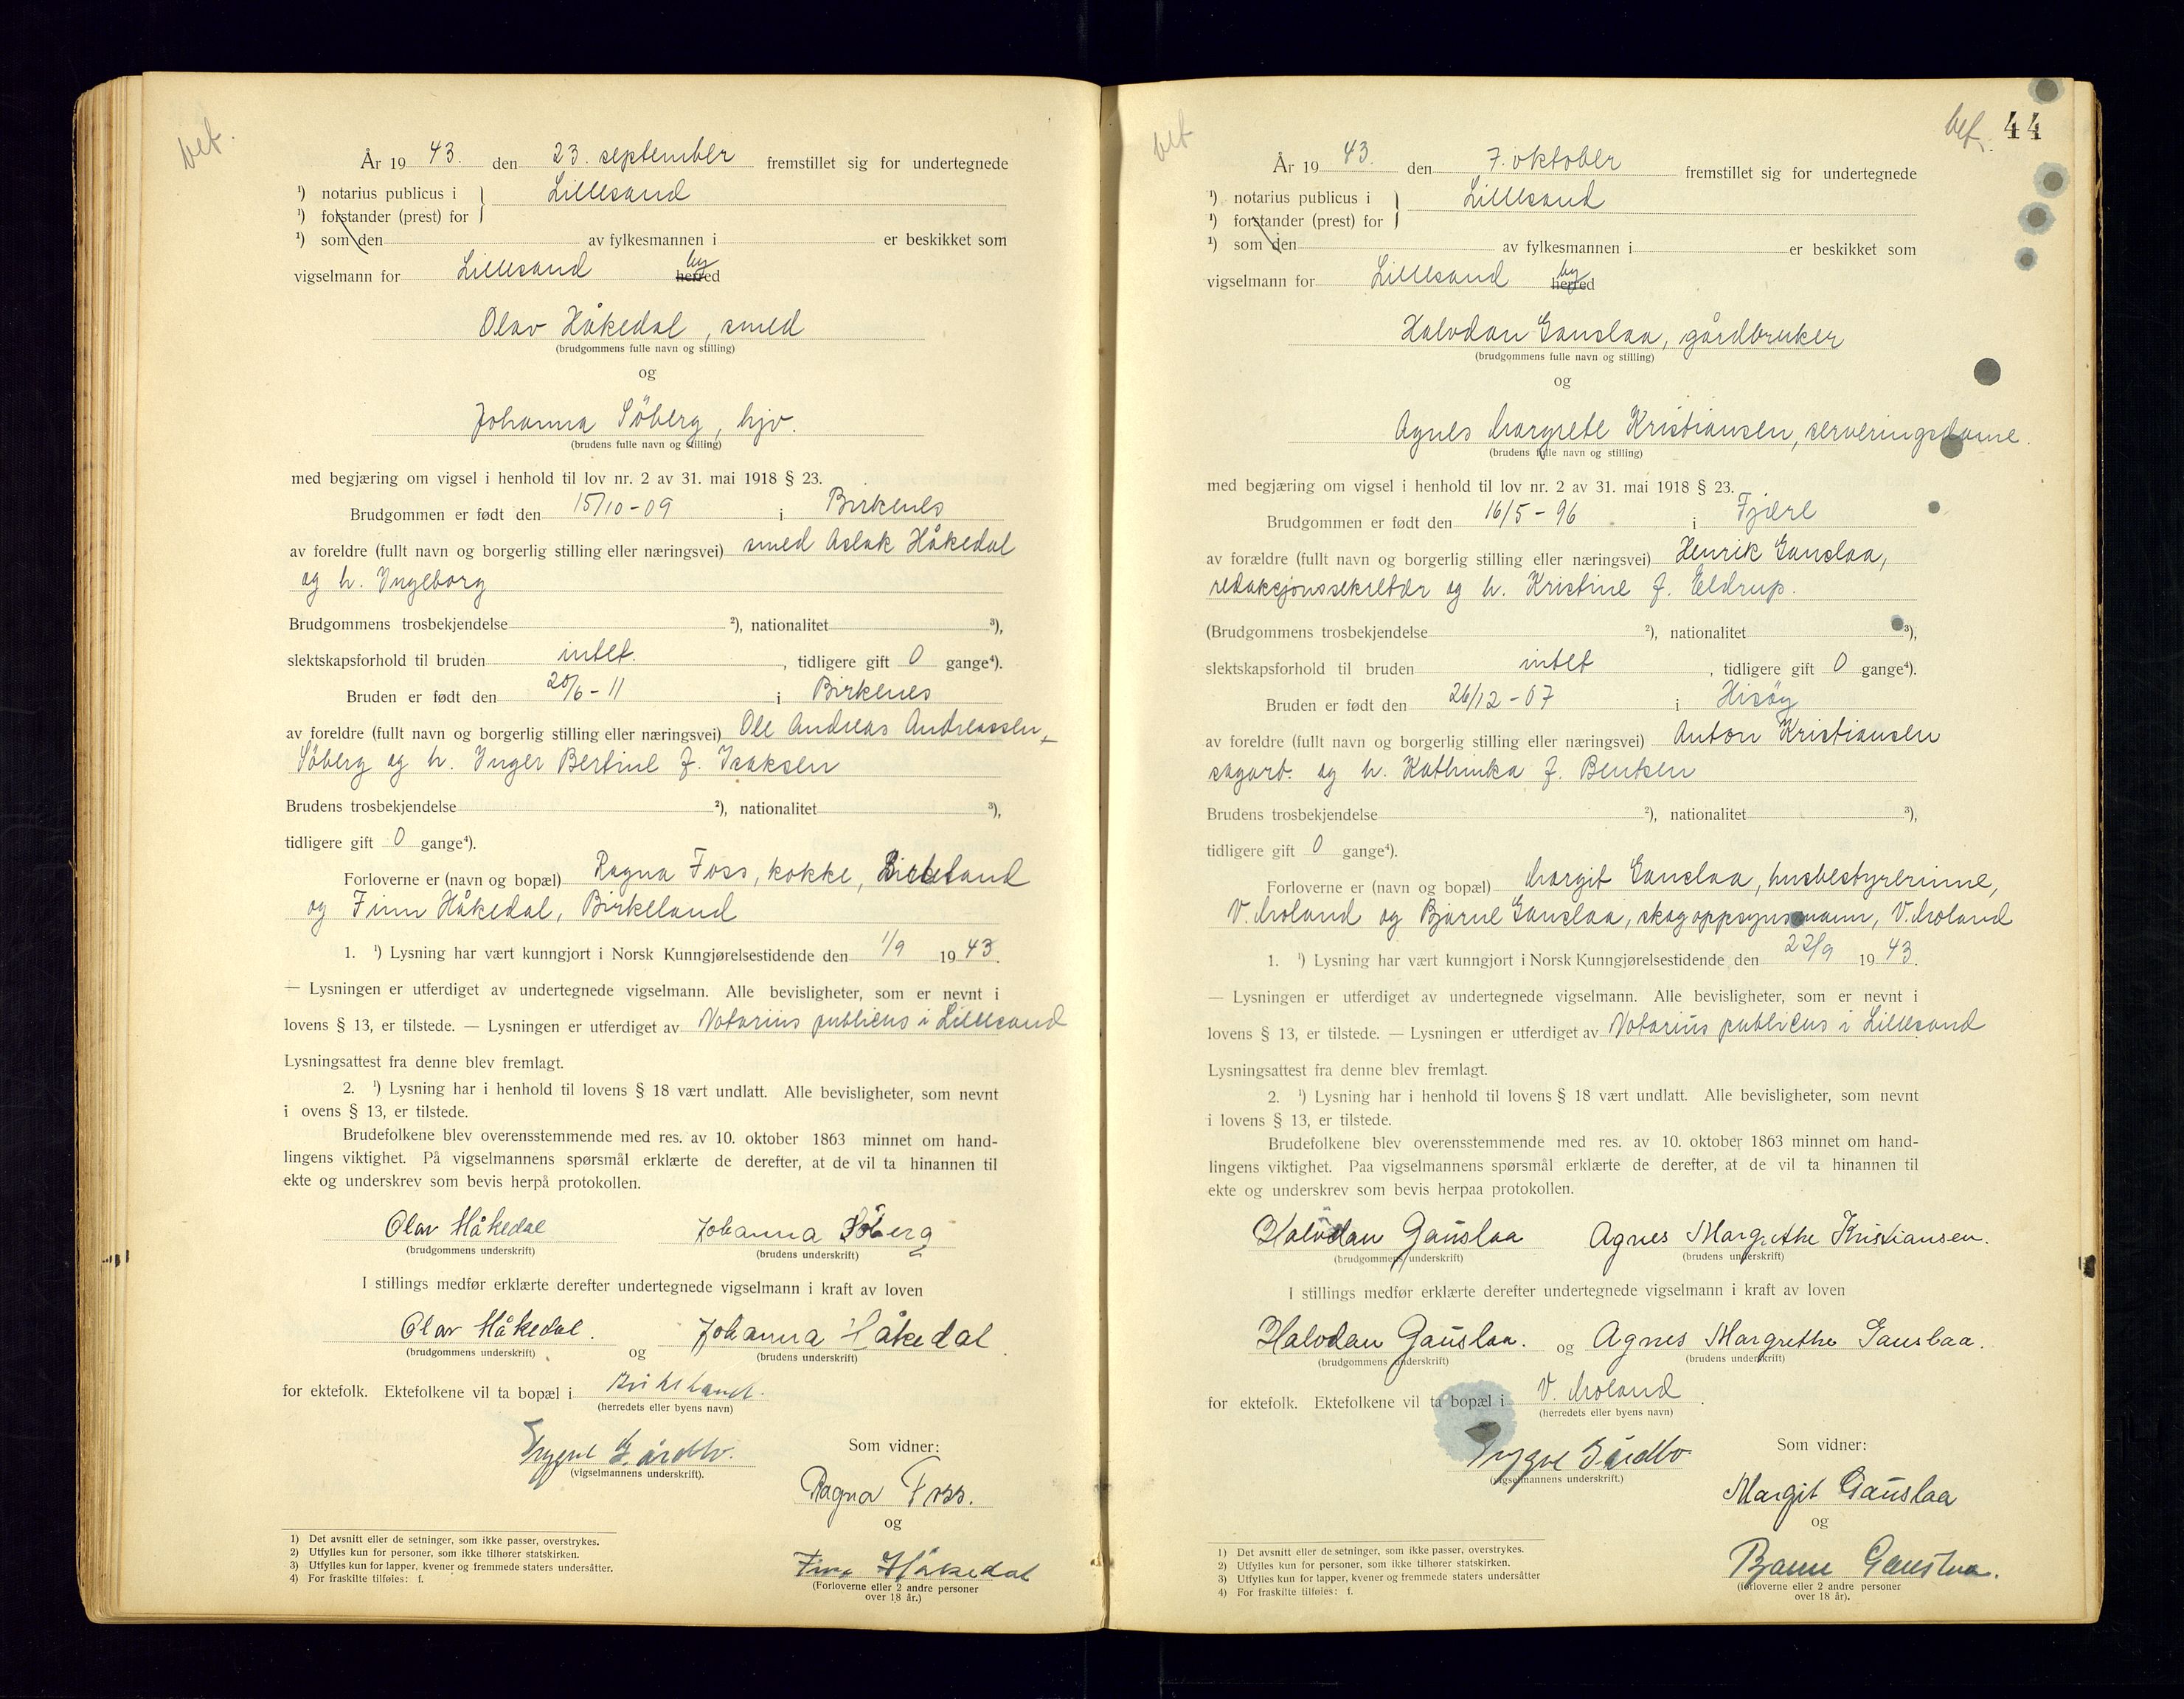 bet.
År 19 43. den 23. september fremstillet sig for undertegnede
¹) notarius publicus i } Lillesand
¹) forstander (prest) for
¹) som den av fylkesmannen i er beskikket som
by
vigselmann for Lillesand herred
Olav Håkedal, smed
(brudgommens fulle navn og stilling)
og
Johanna Söberg, hjv.
(brudens fulle navn og stilling)
med begjæring om vigsel i henhold til lov nr. 2 av 31. mai 1918 § 23.
Brudgommen er født den 15/10-09 i Birkenes
av foreldre (fullt navn og borgerlig stilling eller næringsvei) smed Aslak Håkedal
og h. Ingeborg
Brudgommens trosbekjendelse ²), nationalitet ³),
slektskapsforhold til bruden intet. , tidligere gift 0 gange⁴).
Bruden er født den 20/6-11 i Birkenes
av foreldre (fullt navn og borgerlig stilling eller næringsvei) Ole Andreas Andreassen
Söberg og h. Inger Bertine f. Isaksen
Brudens trosbekjendelse ²), nationalitet ³),
tidligere gift 0 gange⁴).
Forloverne er (navn og bopæl) Ragna Foss, kokke, Birkeland
og Finn Håkedal, Birkeland
1. ¹) Lysning har vært kunngjort i Norsk Kunngjørelsestidende den 1/9 19 43.
— Lysningen er utferdiget av undertegnede vigselmann. Alle bevisligheter, som er nevnt i
lovens § 13, er tilstede. — Lysningen er utferdiget av Notarius publicus i Lillesand
Lysningsattest fra denne blev fremlagt.
2. ¹) Lysning har i henhold til lovens § 18 vært undlatt. Alle bevisligheter, som nevnt
i ovens § 13, er tilstede.
Brudefolkene blev overensstemmende med res. av 10. oktober 1863 minnet om hand-
lingens viktighet. På vigselmannens spørsmål erklærte de derefter, at de vil ta hinannen til
ekte og underskrev som bevis herpå protokollen.
Olav Håkedal Johanna Söberg
(brudgommens underskrift) (brudens underskrift)
I stillings medfør erklærte derefter undertegnede vigselmann i kraft av loven
Olav Håkedal. og Johanna Håkedal
(brudgommens underskrift) (brudens underskrift)
for ektefolk. Ektefolkene vil ta bopæl i Birkeland.
(herredets eller byens navn)
Trygve Gårdbo.
(vigselmannens underskrift).
Som vidner:
Ragna Foss.
og
Finn Håkedal
(Forloverne eller 2 andre personer
over 18 år.)
1) Det avsnitt eller de setninger, som ikke passer, overstrykes.
2) Utfylles kun for personer, som ikke tilhører statskirken.
3) Utfylles kun for lapper, kvener og fremmede staters undersåtter.
4) For fraskilte tilføies: f.
bet
bet. 44
År 19 43. den 7. oktober fremstillet sig for undertegnede
¹) notarius publicus i } Lillesand
¹) forstander (prest) for
¹) som den av fylkesmannen i er beskikket som
by
vigselmann for Lillesand herred
Halvdan Gauslaa, gårdbruker
(brudgommens fulle navn og stilling)
og
Agnes Margrete Kristiansen, serveringsdame.
(brudens fulle navn og stilling)
med begjæring om vigsel i henhold til lov nr. 2 av 31. mai 1918 § 23.
Brudgommen er født den 16/5-96 i Fjære
av forældre (fullt navn og borgerlig stilling eller næringsvei) Henrik Gauslaa,
redaksjonssekretær og h. Kristine f. Eldrup.
(Brudgommens trosbekjendelse ²), nationalitet ³),
slektskapsforhold til bruden intet , tidligere gift 0 gange⁴).
Bruden er født den 26/12-07 i Hisöy
av foreldre (fullt navn og borgerlig stilling eller næringsvei) Anton Kristiansen
sagarb. og h. Kathinka f. Bentsen
Brudens trosbekjendelse ²), nationalitet ³),
tidligere gift 0 gange⁴).
Forloverne er (navn og bopæl) Margit Gauslaa, husbestyrerinne,
V. Moland og Bjarne Gauslaa, skogoppsynsmann, V. Moland
1. ¹) Lysning har vært kunngjort i Norsk Kunngjørelsestidende den 22/9 19 43.
— Lysningen er utferdiget av undertegnede vigselmann. Alle bevisligheter, som er nevnt i
lovens § 13, er tilstede. — Lysningen er utferdiget av Notarius publicus i Lillesand
Lysningsattest fra denne blev fremlagt.
2. ¹) Lysning har i henhold til lovens § 18 vært undlatt. Alle bevisligheter, som nevnt
i lovens § 13, er tilstede.
Brudefolkene blev overensstemmende med res. av 10. oktober 1863 minnet om hand-
lingens viktighet. Paa vigselmannens spørsmål erklærte de derefter, at de vil ta hinannen til
ekte og underskrev som bevis herpaa protokollen.
Halvdan Gauslaa Agnes Margrethe Kristiansen.
(brudgommens underskrift) (brudens underskrift)
I stillings medfør erklærte derefter undertegnede vigselmann i kraft av loven
Halvdan Gauslaa. og Agnes Margrethe Gauslaa.
(brudgommens underskrift) (brudens underskrift)
for ektefolk. Ektefolkene vil ta bopæl i V. Moland.
(herredets eller byens navn)
Trygve Gårdbo
(vigselmannens underskrift.)
Som vidner:
Margit Gauslaa
og
Bjarne Gauslaa.
(forloverne eller 2 andre personer
over 18 år).
1) Det avsnitt eller de setninger, som ikke passer, overstrykes.
2) Utfylles kun for personer, som ikke tilhører statskirken.
3) Utfylles kun for lapper, kvener og fremmede staters undersåtter
4) For fraskilte tilføies: f.